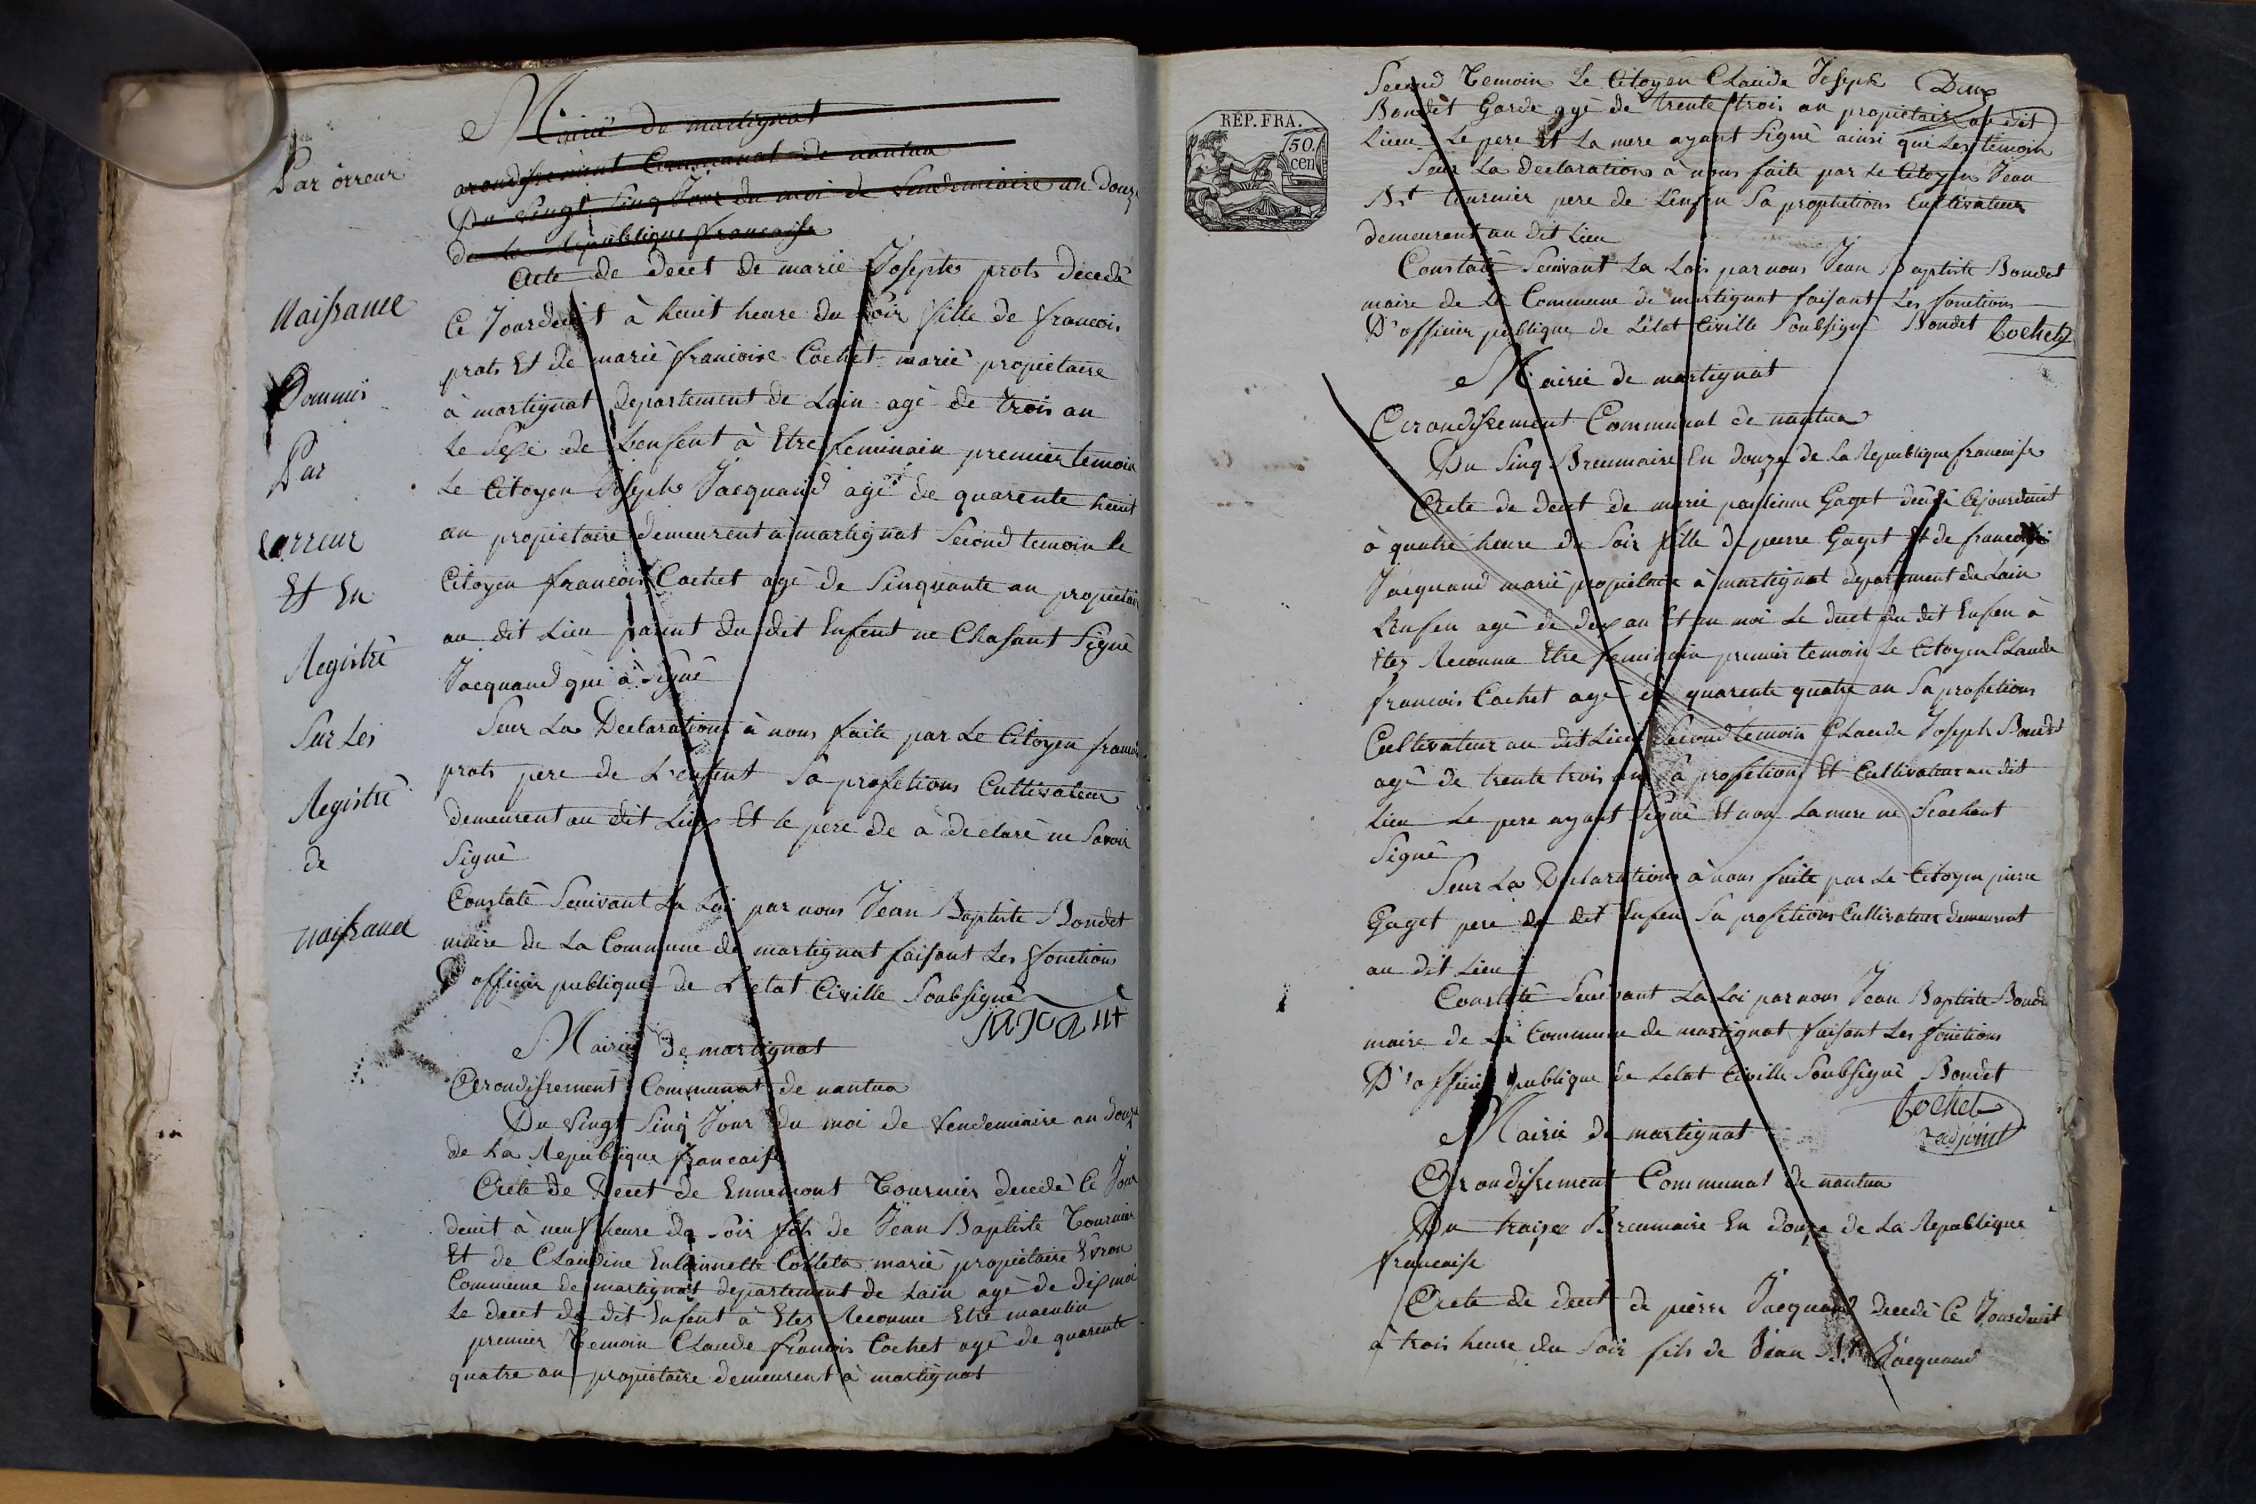 Par orreur
Naissance
Donnués
Par
Errreur
Et En
Registré
Sur Les
Registré
de
naissance
Mairie de martignat
arondissement Communat de nantua
Du Vingt Sinq Jour du moi de Vendemiaire an douze
de la Republique francaisse
Acte de decet de marie Josephe prots decedé
Ce Jourdeuit à heuit heure du Soir fille de francois
prots Et de marie francoise Cochet marié propietaire
à martignat Departement de Lain agé de trois an
le Sexe de Lenfent à Etre feminain premier temoin
Le Citoyen Joseph Jacquand agé de quarente heuit
an propietaire demeurent à martignat Second temoin le
Citoyen francois Cochet agé de Sinquante an propietaire
au dit Lieu parent du dit Enfent ne Chasant Signé
Jacquand qui à Signé
Seur La Declarations à nous faite par Le Citoyen francois
prots pere de L'enfent Sa profetions Cultivateur
demeurent au dit Lieu Et le pere de à declaré ne Savoir
Signé
Constaté Seuivant La Loi par nous Jean Baptiste Bondet
maire de La Commune de martignat faisant Les fonctions
D'officier publique de L'etat Civille Soubsigné
JACQAUT
Mairie de martignat
Arondissement Communat de nantua
Du Vingt Sinq Jour du moi de Vendemiaire an douze
de La Republique francaise
Acte de Decet de Ennemont Tournier decedé Ce Jour
deuit à neuf heure du Soir fils de Jean Baptiste Tournier
Et de Claudine Colleta marié propietaire Evron
Commune de martignat departement de Lain agé de dix moi
Le decet du dit Enfent à Eter Reconnu Etre masculin
premier Temoin Claude francois Cochet agé de quarente
quatre an propietaire demeurent à martignat
RÉP. FRA.
50.
cen
Second Temoin Le Citoyen Claude Joseph
Bondet Garde agé de trente trois an propietaire au dit
Lieu Le pere Et La mere ayant Signé ainsi que Les temoin
Seur La Declarations à nous faite par Le Citoyen Jean
Bt tournier pere de Lenfen Sa prophetions Cultivateur
demeurent au dit Lieu
Constaté Seuivant La Lois par nous Jean Baptiste Bondet
maire de La Commune de martignat faisant Les fonctions
D'officier publique de L'état Civille Soubsigné Bondet Cochet
Mairie de martignat
Arondissement Communat de nantua
Du Sinq Breumaire En douze de La Republique francaise
Acte de decet de marie Gaget decedé Cejourdeuit
à quatre heure du Soir fille de pierre Gaget Et de francoise
Jacquand marié propietaire à martignat departement du Lain
Lenfen agé de dix an Et un moi Le decet du dit Enfen à
Eter Reconnu Etre feminain premier temoin Le Citoyen Claude
francois Cochet agé de quarente quatre an Sa profetions
Cultivateur au dit Lieu Second temoin Claude Joseph Bondet
agé de trente trois an Sa profetions Et Cultivateur au dit
Lieu Le pere ayant Signé Et non La mere ne Scachant
Signé
Seur La Declarations à nous faite par Le Citoyen pierre
Gaget pere du dit Enfen Sa profetions Cultivateur demeurent
au dit Lieu
Constaté Seuivant La Loi par nous Jean Baptiste Bondet
maire de La Commune de martignat faisant Les fonctions
D'officier publique de Letat Civille Soubsigné Bondet
Cochet
adjoint
Mairie de martignat
Arondissement Communat de nantua
Du traize Breumaire En douze de La Republique
francaise
Acte de decet de pierre Jacquand decedé Ce Jourdeuit
à trois heure du Soir fils de Jean Bt Jacquand